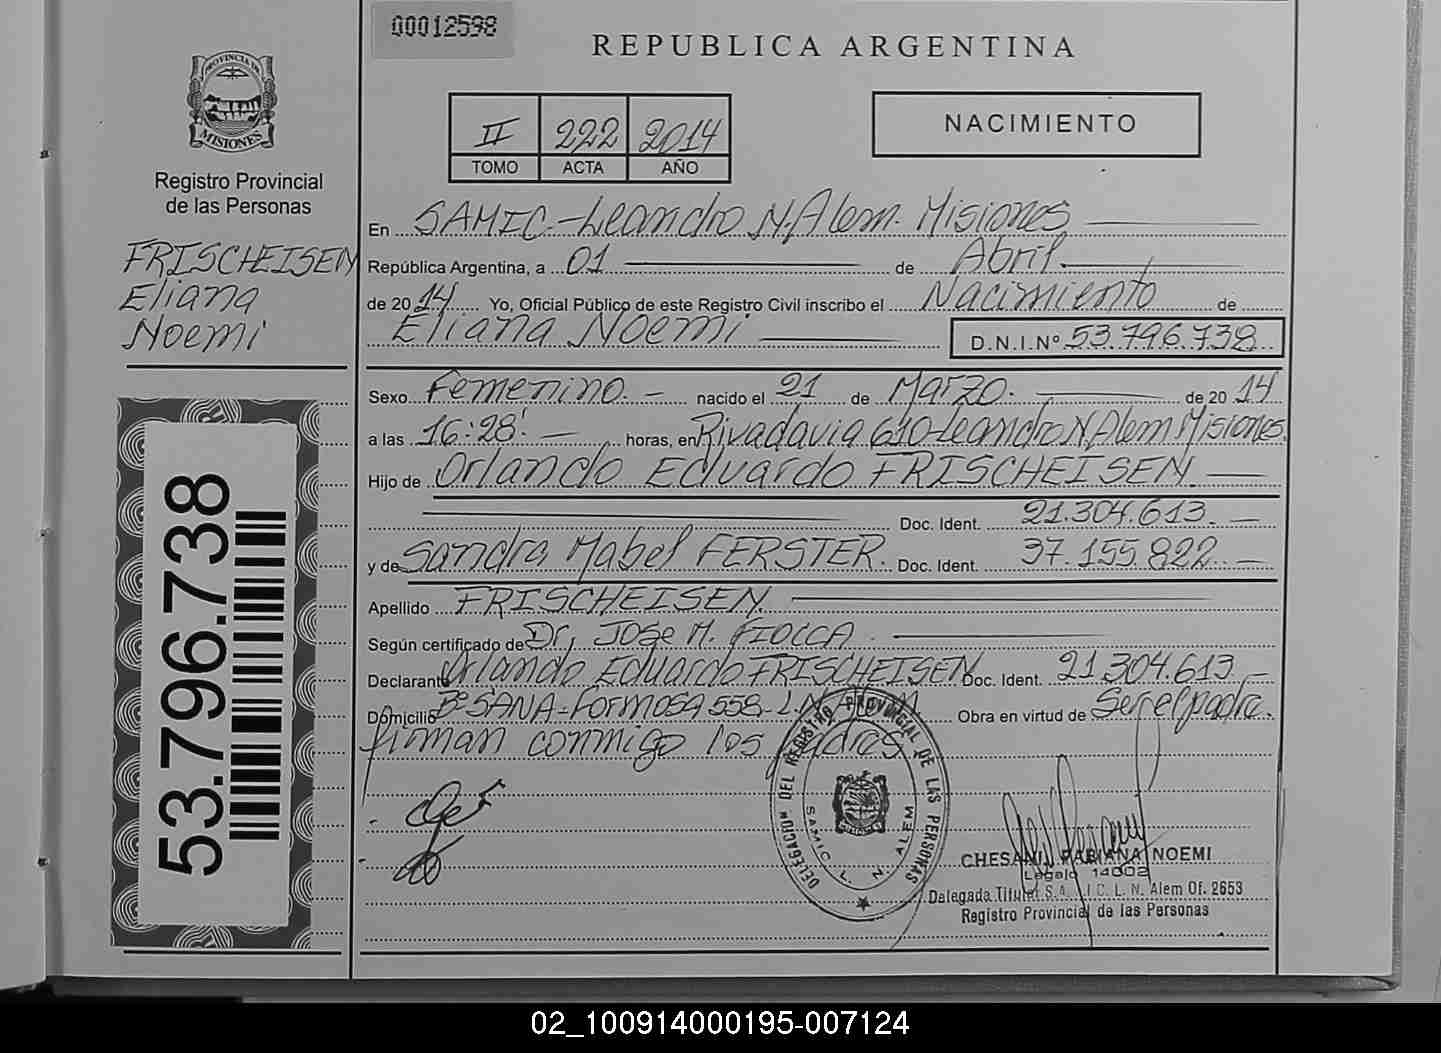 00012598
REPUBLICA ARGENTINA
PROVINCIA DE
MISIONES
Registro Provincial
de las Personas
II 222 2014
TOMO ACTA AÑO
NACIMIENTO
FRISCHEISEN
Eliana
Noemi
53.796.738
En SAMIC-Leandro N. Alem. Misiones
República Argentina, a 01 de Abril.
de 2014 Yo, Oficial Público de este Registro Civil inscribo el Nacimiento de
Eliana Noemi D.N.I.Nº 53.796.738
Sexo Femenino.- nacido el 21 de Marzo. de 2014
a las 16:28'.- horas, en Rivadavia 610-Leandro N. Alem Misiones.
Hijo de Orlando Eduardo FRISCHEISEN.
Doc. Ident. 21.304.613.-
y de Sandra Mabel FERSTER. Doc. Ident. 37.155.822.-
Apellido FRISCHEISEN.
Según certificado de Dr, JOSE M. FIOCCA.
Declarante Orlando Eduardo FRISCHEISEN Doc. Ident. 21.304.613.-
Domicilio Bº SANA-FORMOSA 558-L.N. Alem Obra en virtud de Ser el padre.
firman conmigo los padres
DELEGACION DEL REGISTRO PROVINCIAL DE LAS PERSONAS
SAMIC L. N. ALEM
CHESANI, FABIANA NOEMI
Legajo 14002
Delegada Titular S.A.M.I.C. L. N. Alem Of. 2653
Registro Provincial de las Personas
02_100914000195-007124